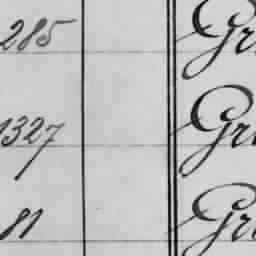 285 Gr
1327 Gr
81 Gr